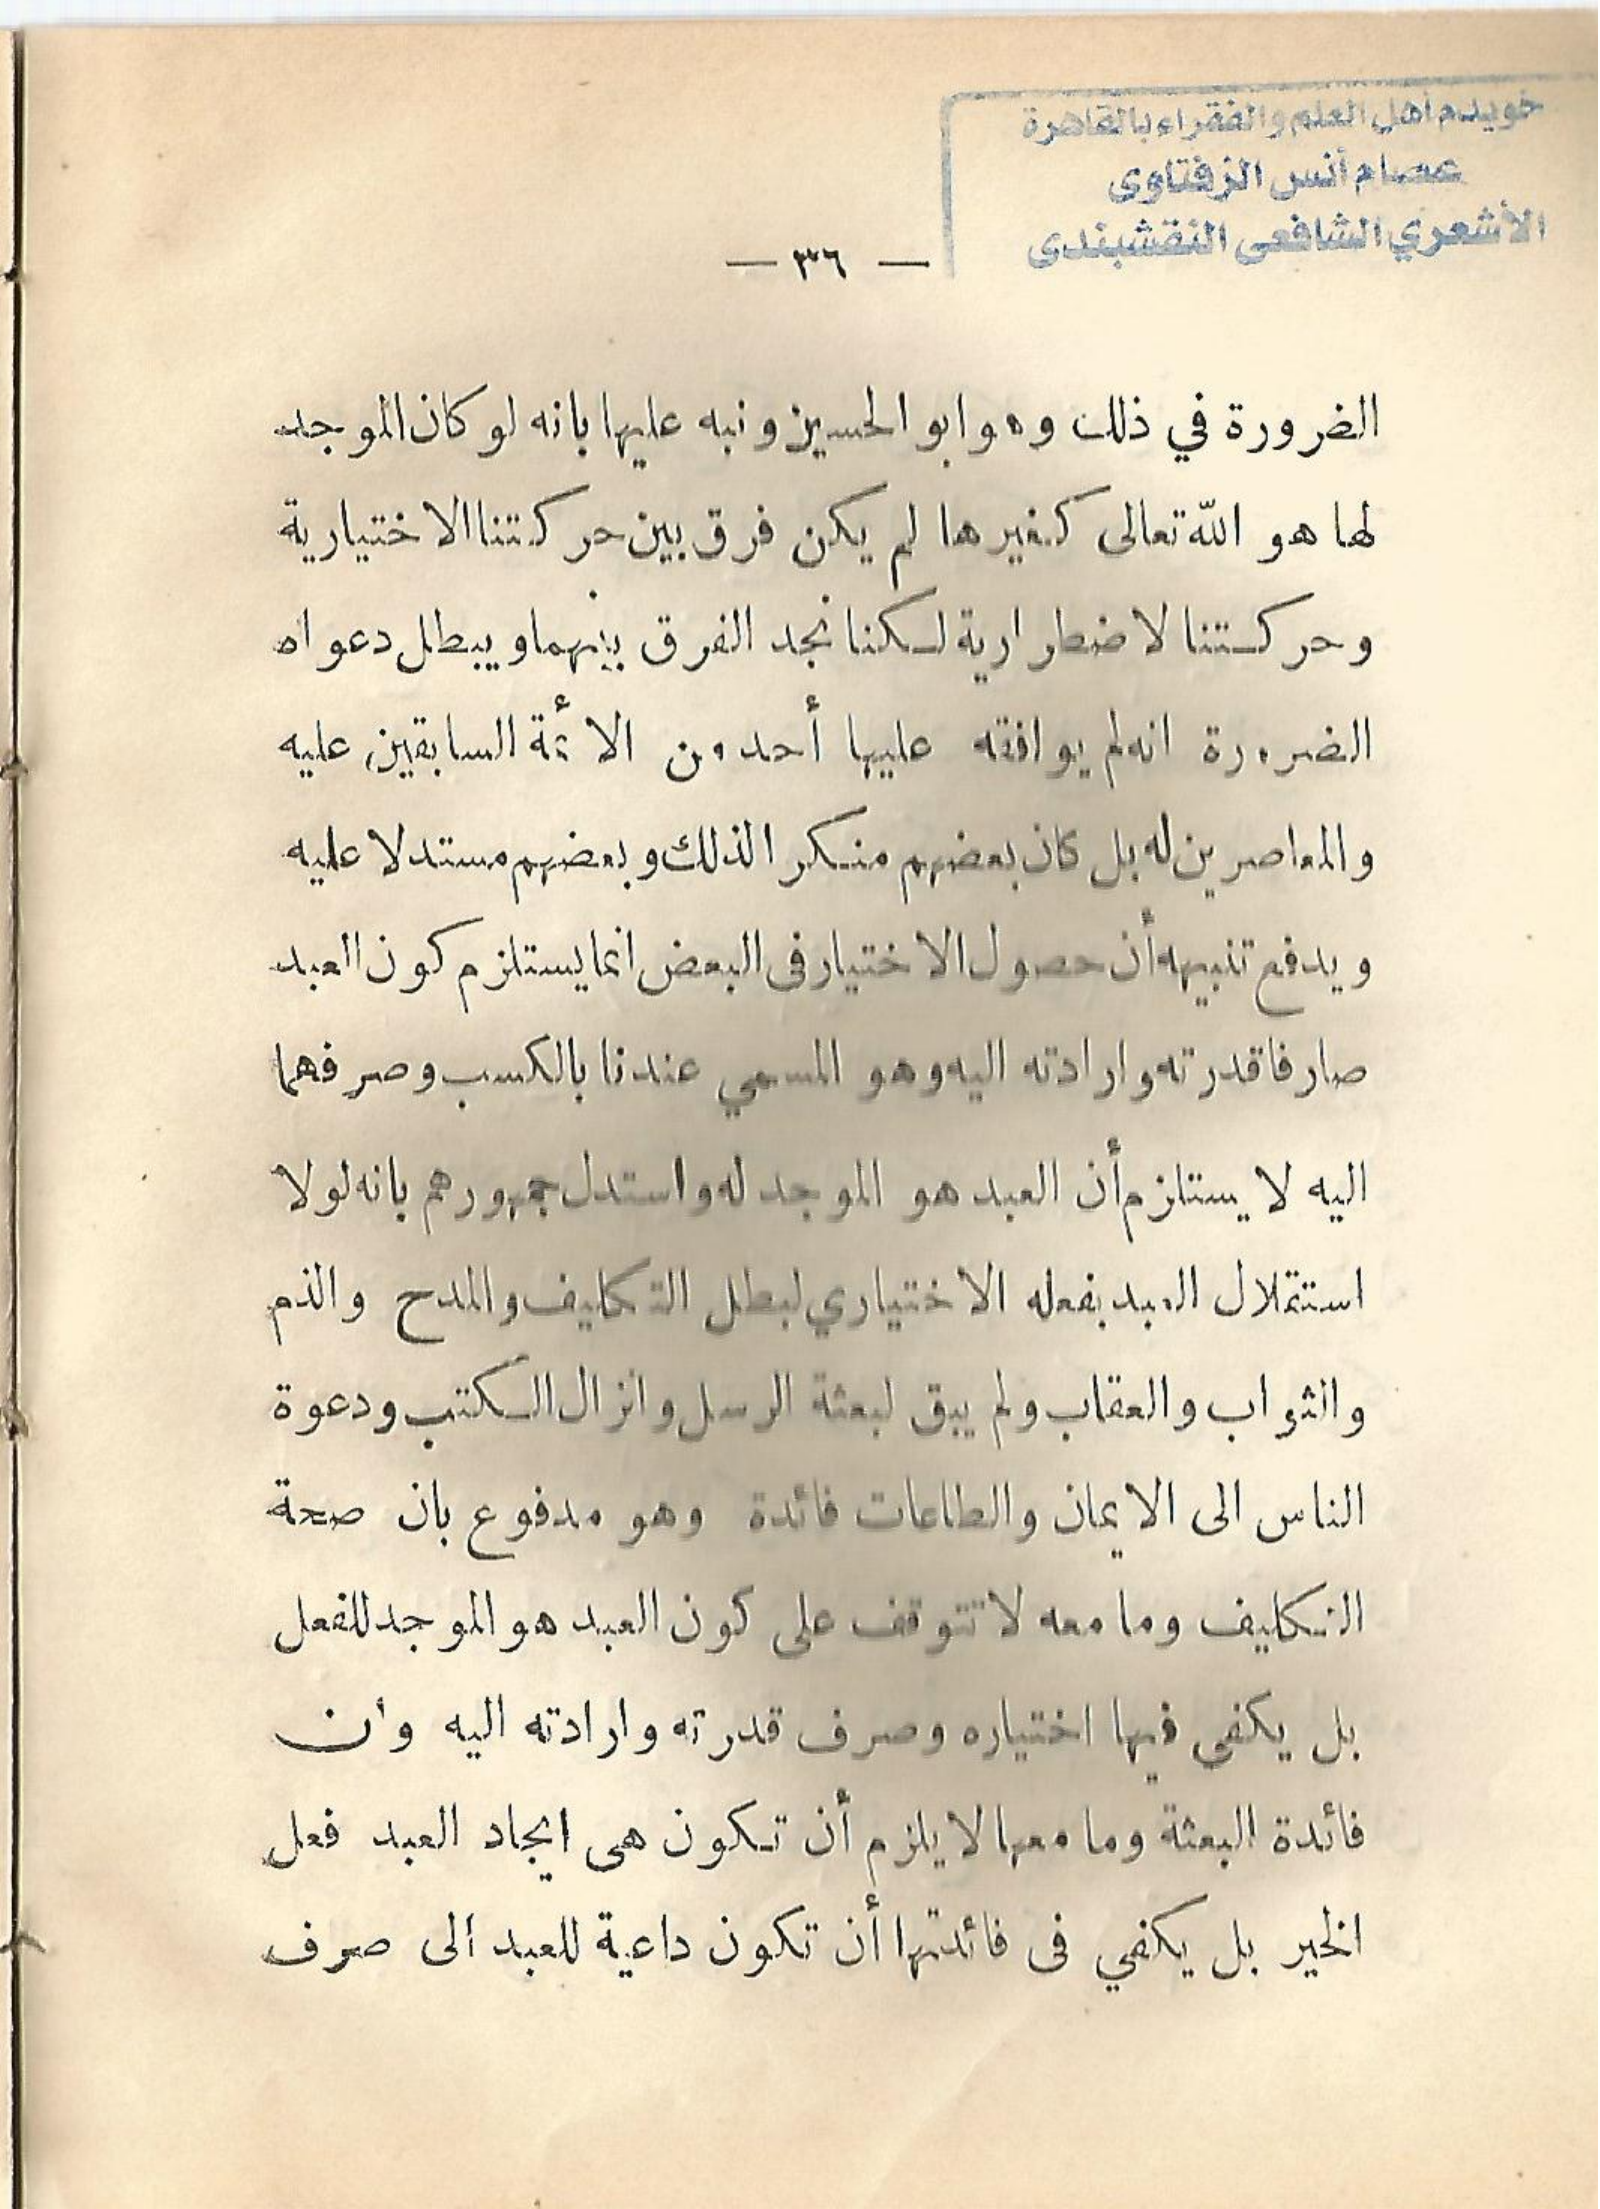 خويدم أهل العلم والفقراء بالقاهرة
عصام أنس الزفتاوى
الأشعري الشافعى النقشبندى
— ٣٦ —
الضرورة في ذلك وهو ابو الحسين ونبه عليها بانه لو كان الموجد
لها هو الله تعالى كغيرها لم يكن فرق بين حركتنا الاختيارية
وحركتنا لاضطرارية لكنا نجد الفرق بينهما ويبطل دعواه
الضرورة انه لم يوافقه عليها أحد من الأئمة السابقين عليه
والمعاصرين له بل كان بعضهم منكرا لذلك وبعضهم مستدلا عليه
ويدفع تنبيهه أن حصول الاختيار فى البعض انما يستلزم كون العبد
صارفا قدرته وارادته اليه وهو المسمي عندنا بالكسب وصرفهما
اليه لا يستلزم أن العبد هو الموجد له واستدل جمهورهم بانه لولا
استقلال العبد بفعله الاختياري لبطل التكليف والمدح والذم
والثواب والعقاب ولم يبق لبعثة الرسل وانزال الكتب ودعوة
الناس الى الايمان والطاعات فائدة وهو مدفوع بان صحة
التكليف وما معه لا تتوقف على كون العبد هو الموجد للفعل
بل يكفى فيها اختياره وصرف قدرته وارادته اليه وان
فائدة البعثة وما معها لا يلزم أن تكون هى ايجاد العبد فعل
الخير بل يكفي فى فائدتها أن تكون داعية للعبد الى صرف